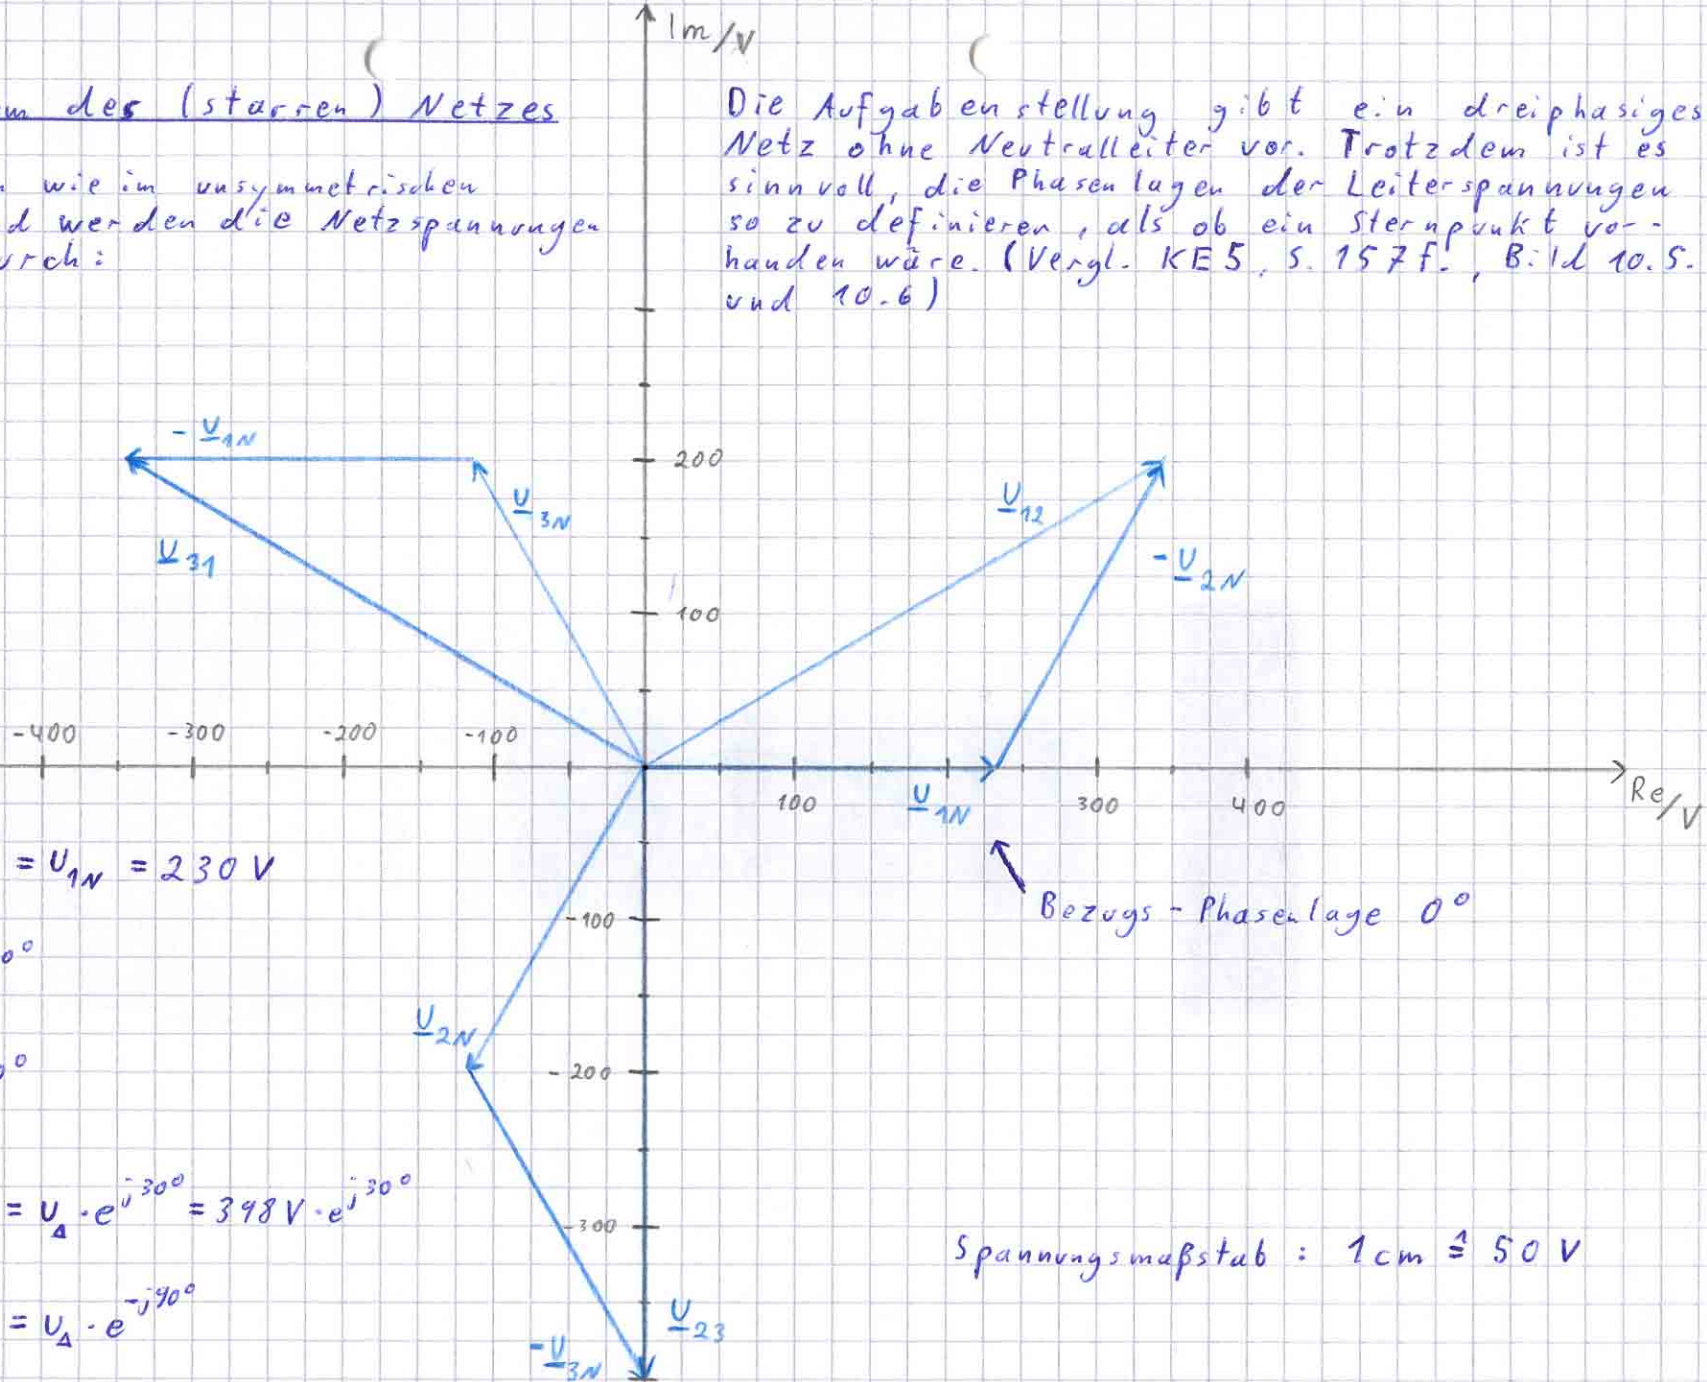 Im/V
des (starren) Netzes
wie im unsymmetrischen
werden die Netzspannungen
Die Aufgabenstellung gibt ein dreiphasiges
Netz ohne Neutralleiter vor. Trotzdem ist es
sinnvoll, die Phasenlagen der Leiterspannungen
so zu definieren, als ob ein Sternpunkt vor-
handen wäre. (Vergl. KE5, S. 157f., Bild 10.5.
und 10.6)
- U1N
200
U3N
U12
U31
- U2N
100
-400
-300
-200
-100
100
U1N
300
400
Re/V
= U1N = 230 V
-100
Bezugs - Phasenlage 0°
U2N
-200
= UΔ · e^j30° = 398 V · e^j30°
-300
Spannungsmaßstab : 1cm ≙ 50 V
= UΔ · e^-j90°
U23
-U3N